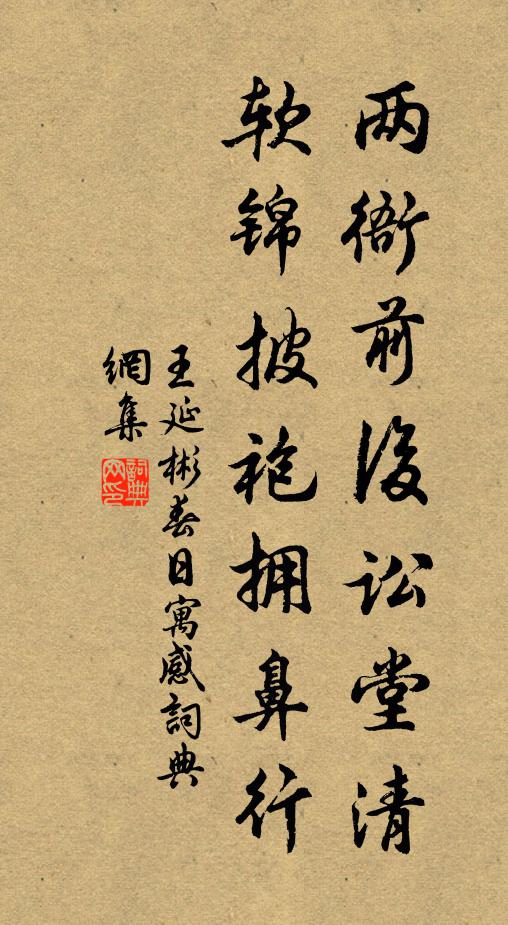 两衙前後讼堂清
软锦披袍拥鼻行
王延彬春日寓感詞典
網集
詞典
网印